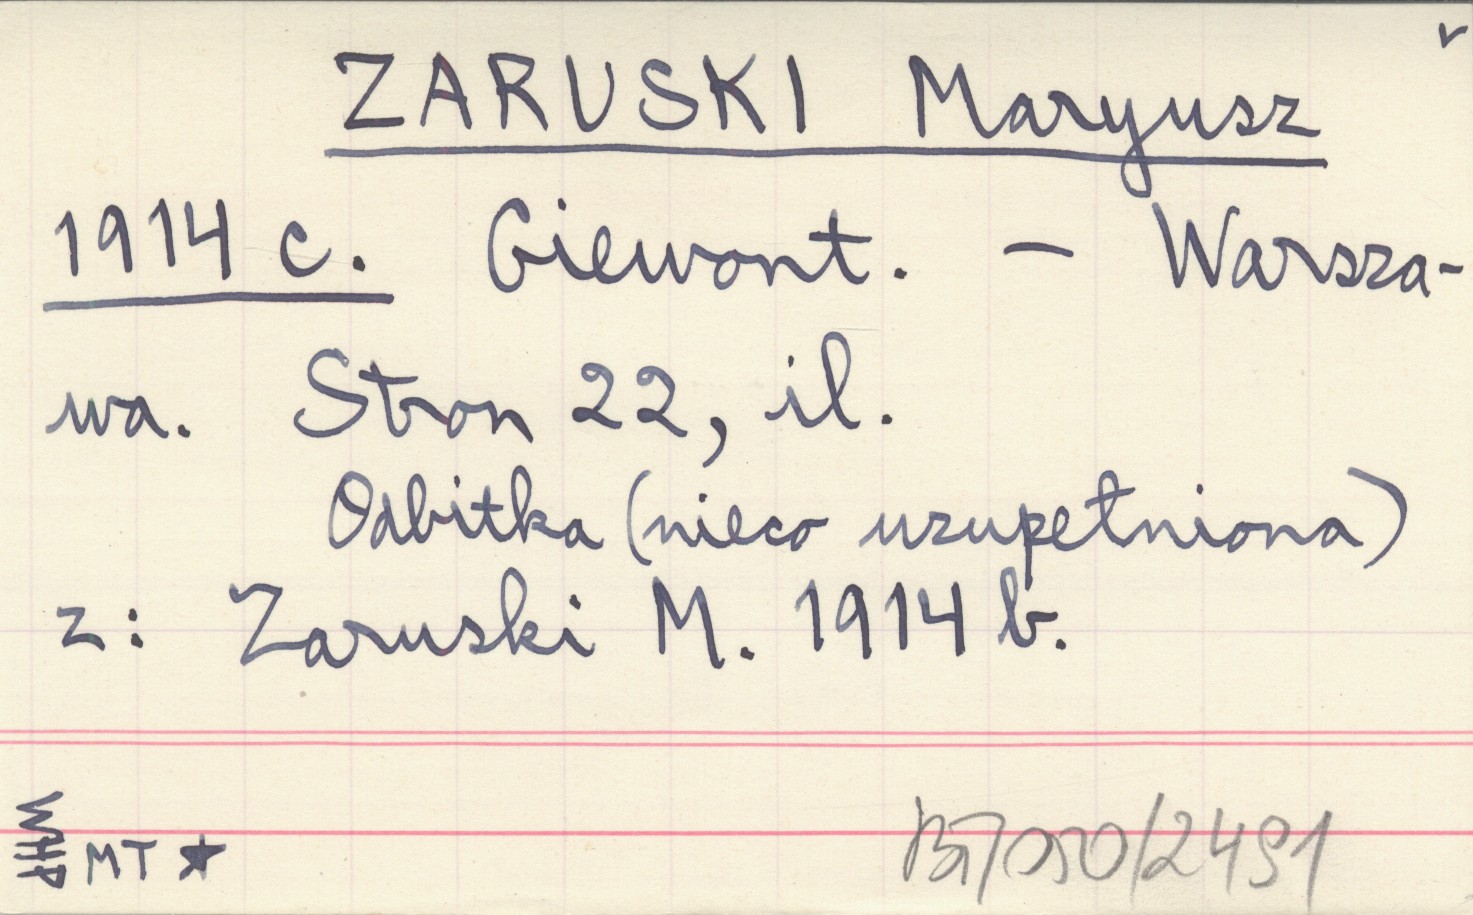 v
ZARUSKI Maryusz
1914 c. Giewont. - Warsza-
wa. Stron 22, il.
Odbitka (nieco uzupełniona)
z: Zaruski M. 1914 b.
WHP MT ★